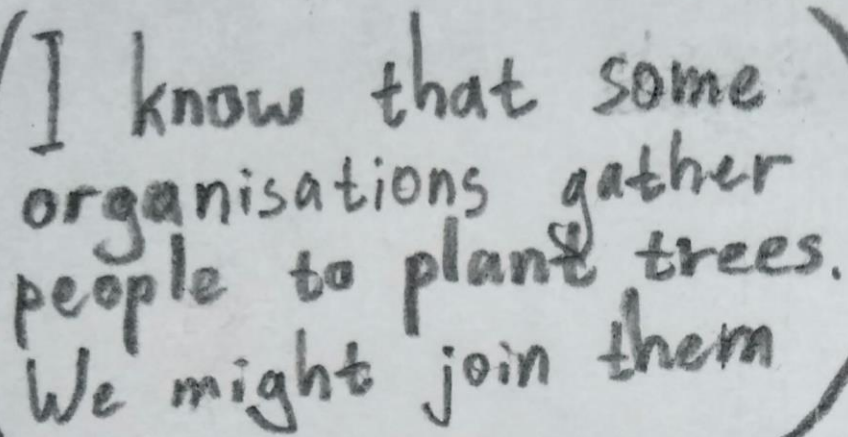 (I know that some
organisations gather
people to plant trees.
We might join them)